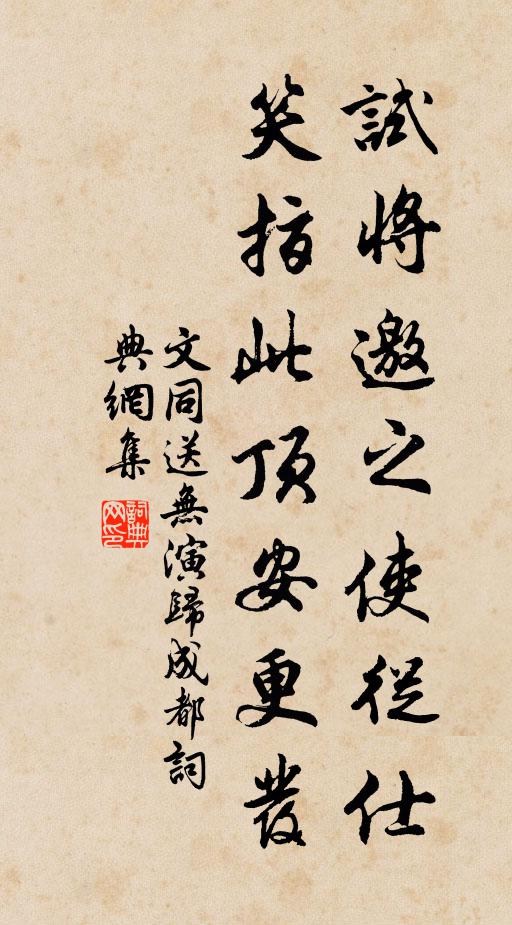 試將邀之使從仕
笑指此頂安更發
文同送無演歸成都詞
典網集
詞典
網印